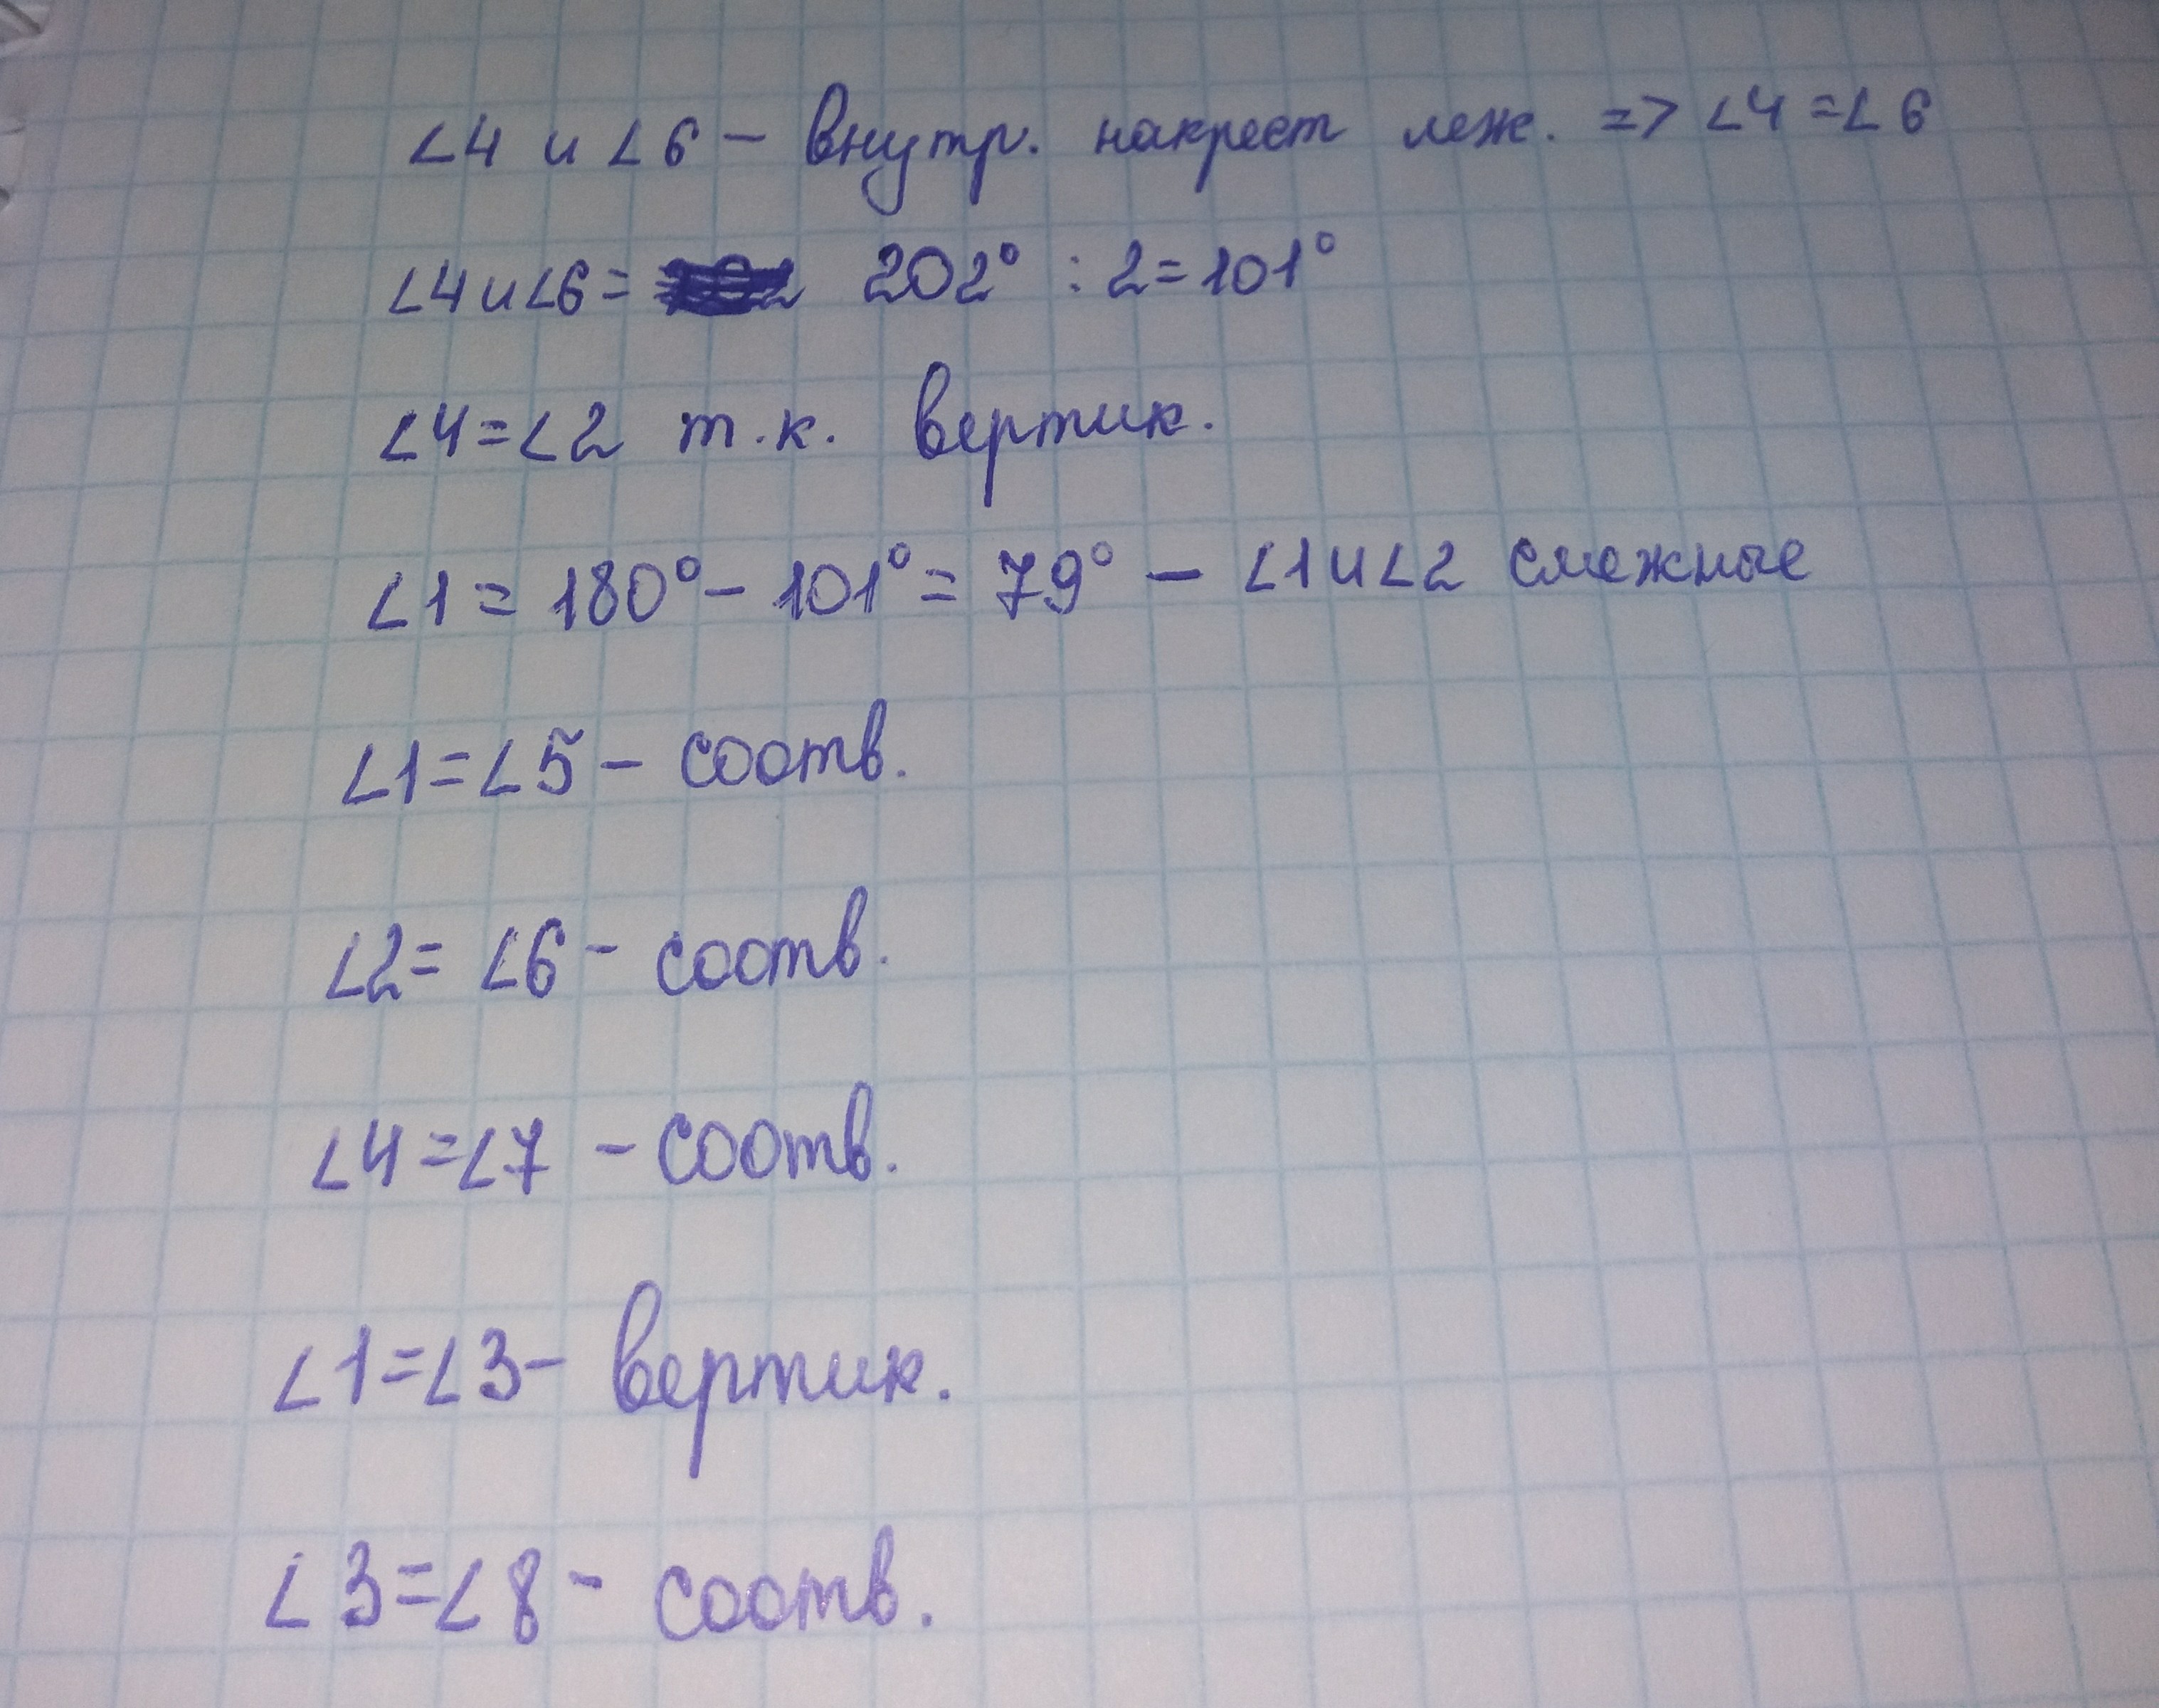 ∠4 и ∠6 – внутр. накрест леж. => ∠4 =∠6
∠4 и ∠6 = 202° : 2 = 101°
∠4=∠2 т.к. вертик.
∠1 = 180° – 101° = 79° – ∠1 и ∠2 смежные
∠1=∠5 – соотв.
∠2= ∠6 – соотв.
∠4 =∠7 – соотв.
∠1=∠3 – вертик.
∠3=∠8 – соотв.